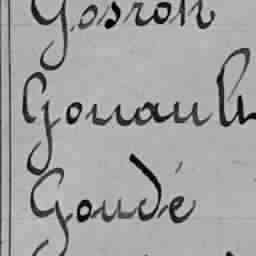 Gosron
Gouault
Goudé